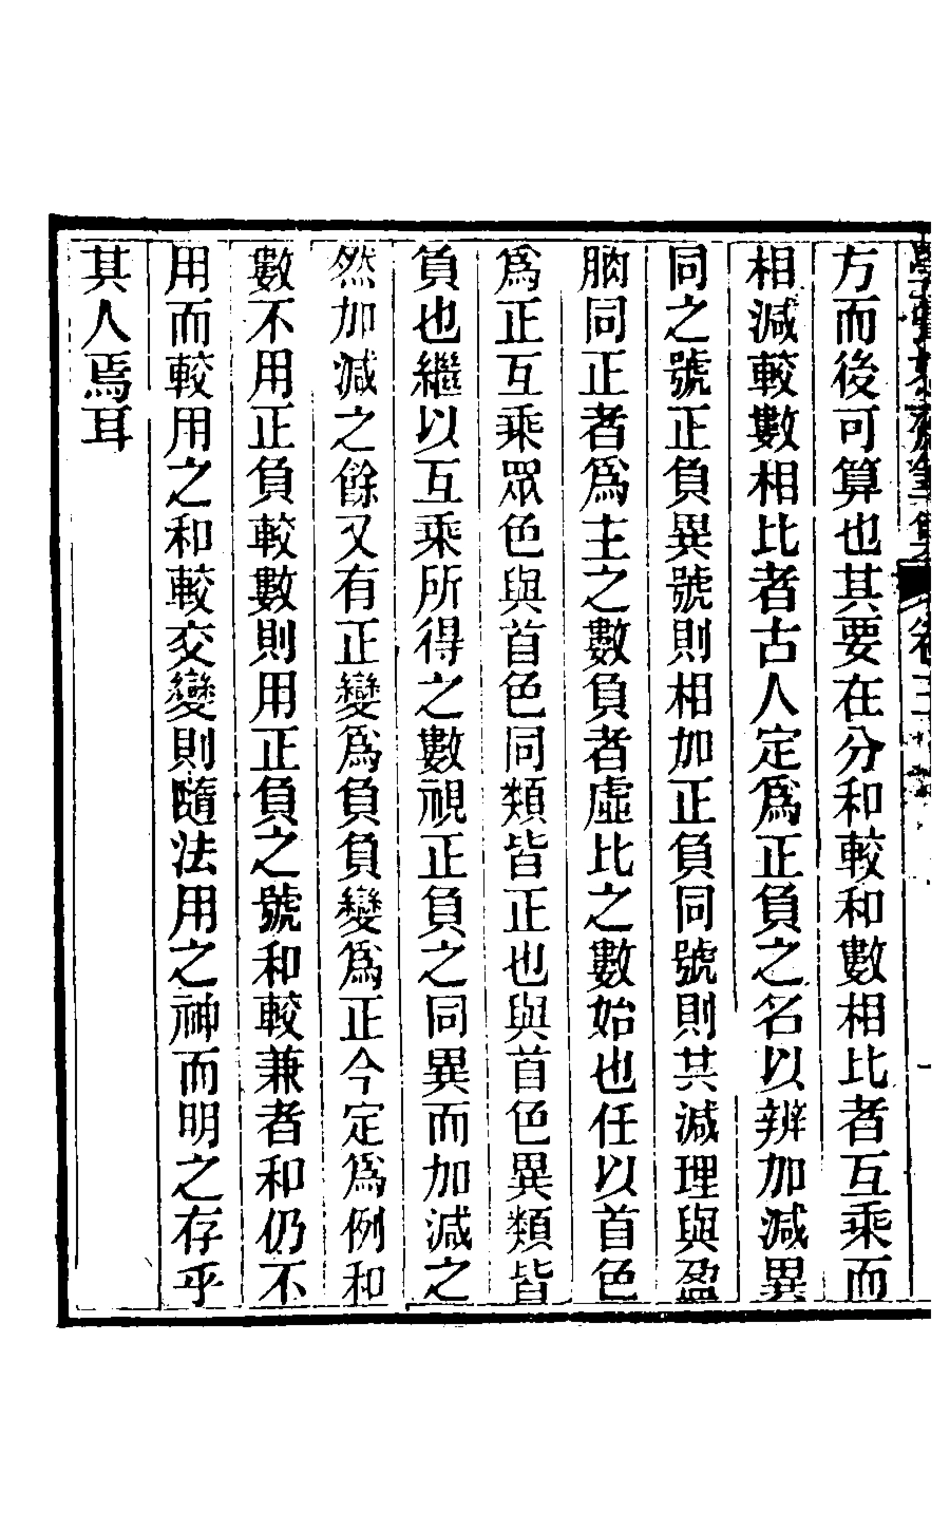 方而後可算也其要在分和較和數相比者互乘而
相減較數相比者古人定爲正負之名以辨加減異
同之號正負異號則相加正負同號則其減理與盈
朒同正者爲主之數負者虛比之數始也任以首色
爲正互乘眾色與首色同類皆正也與首色異類皆
負也繼以互乘所得之數視正負之同異而加減之
然加減之餘又有正變爲負負變爲正今定爲例和
數不用正負較數則用正負之號和較兼者和仍不
用而較用之和較交變則隨法用之神而明之存乎
其人焉耳